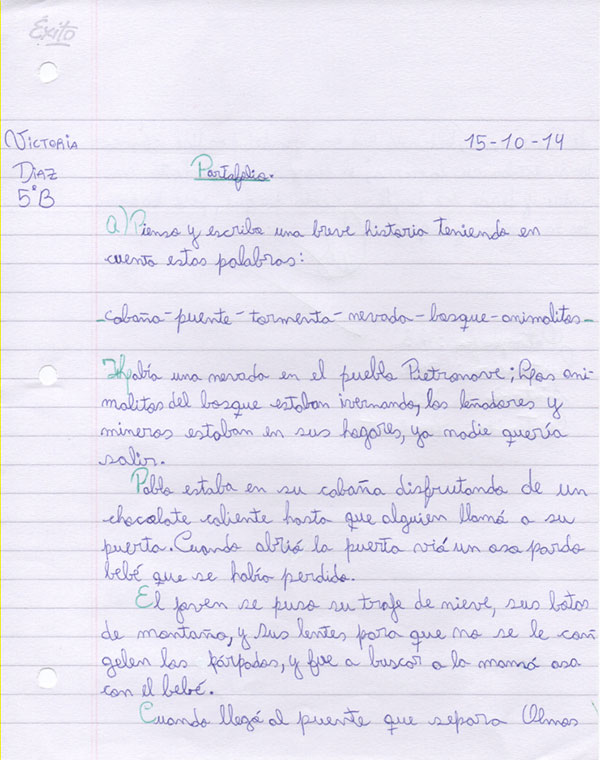 Éxito
Victoria
Díaz
5°B
15-10-14
Portafolio.
a) Pienso y escribo una breve historia teniendo en
cuenta estas palabras:
-cabaña-puente-tormenta-nevada-bosque-animalitos-
Había una nevada en el pueblo Pietranove; los ani-
malitos del bosque estaban ivernando, los leñadores y
mineros estaban en sus hogares, ya nadie quería
salir.
Pablo estaba en su cabaña disfrutando de un
chocolate caliente hasta que alguien llamó a su
puerta. Cuando abrió la puerta vió un oso pardo
bebé que se había perdido.
El joven se puso su traje de nieve, sus botas
de montaña, y sus lentes para que no se le con
gelen los párpados, y fue a buscar a la mamá osa
con el bebé.
Cuando llegó al puente que separa Olmos